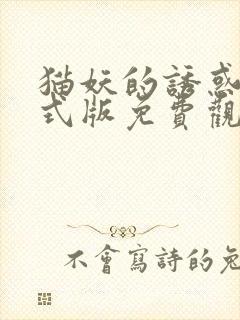 猫妖的誘惑
式版免費觀
不會寫詩的兔